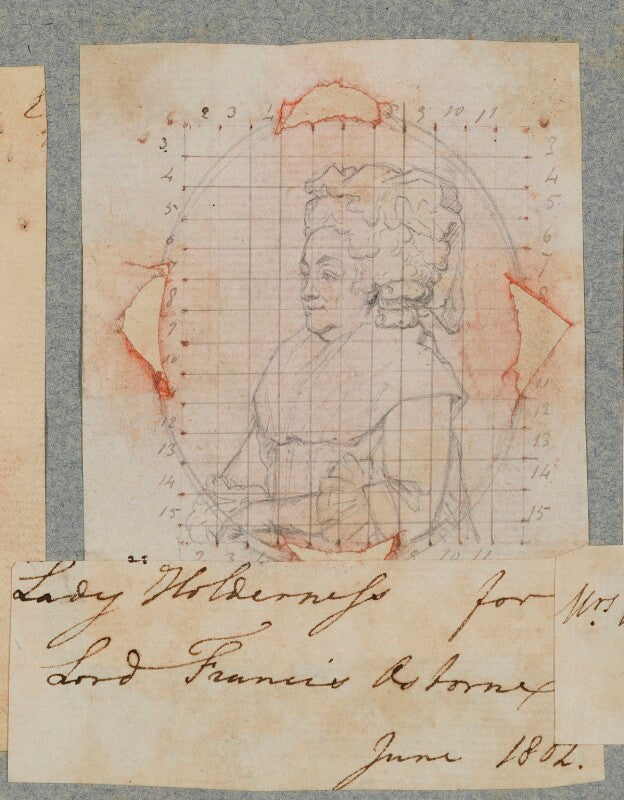 2 3 4 8 9 10 11
3 3
4 4
5 5
6 6
7 7
8 8
9
10
11
12 12
13 13
14 14
15 15
2 3 10 11
Lady Holderness for
Lord Francis Osborne
June 1802.
Mrs